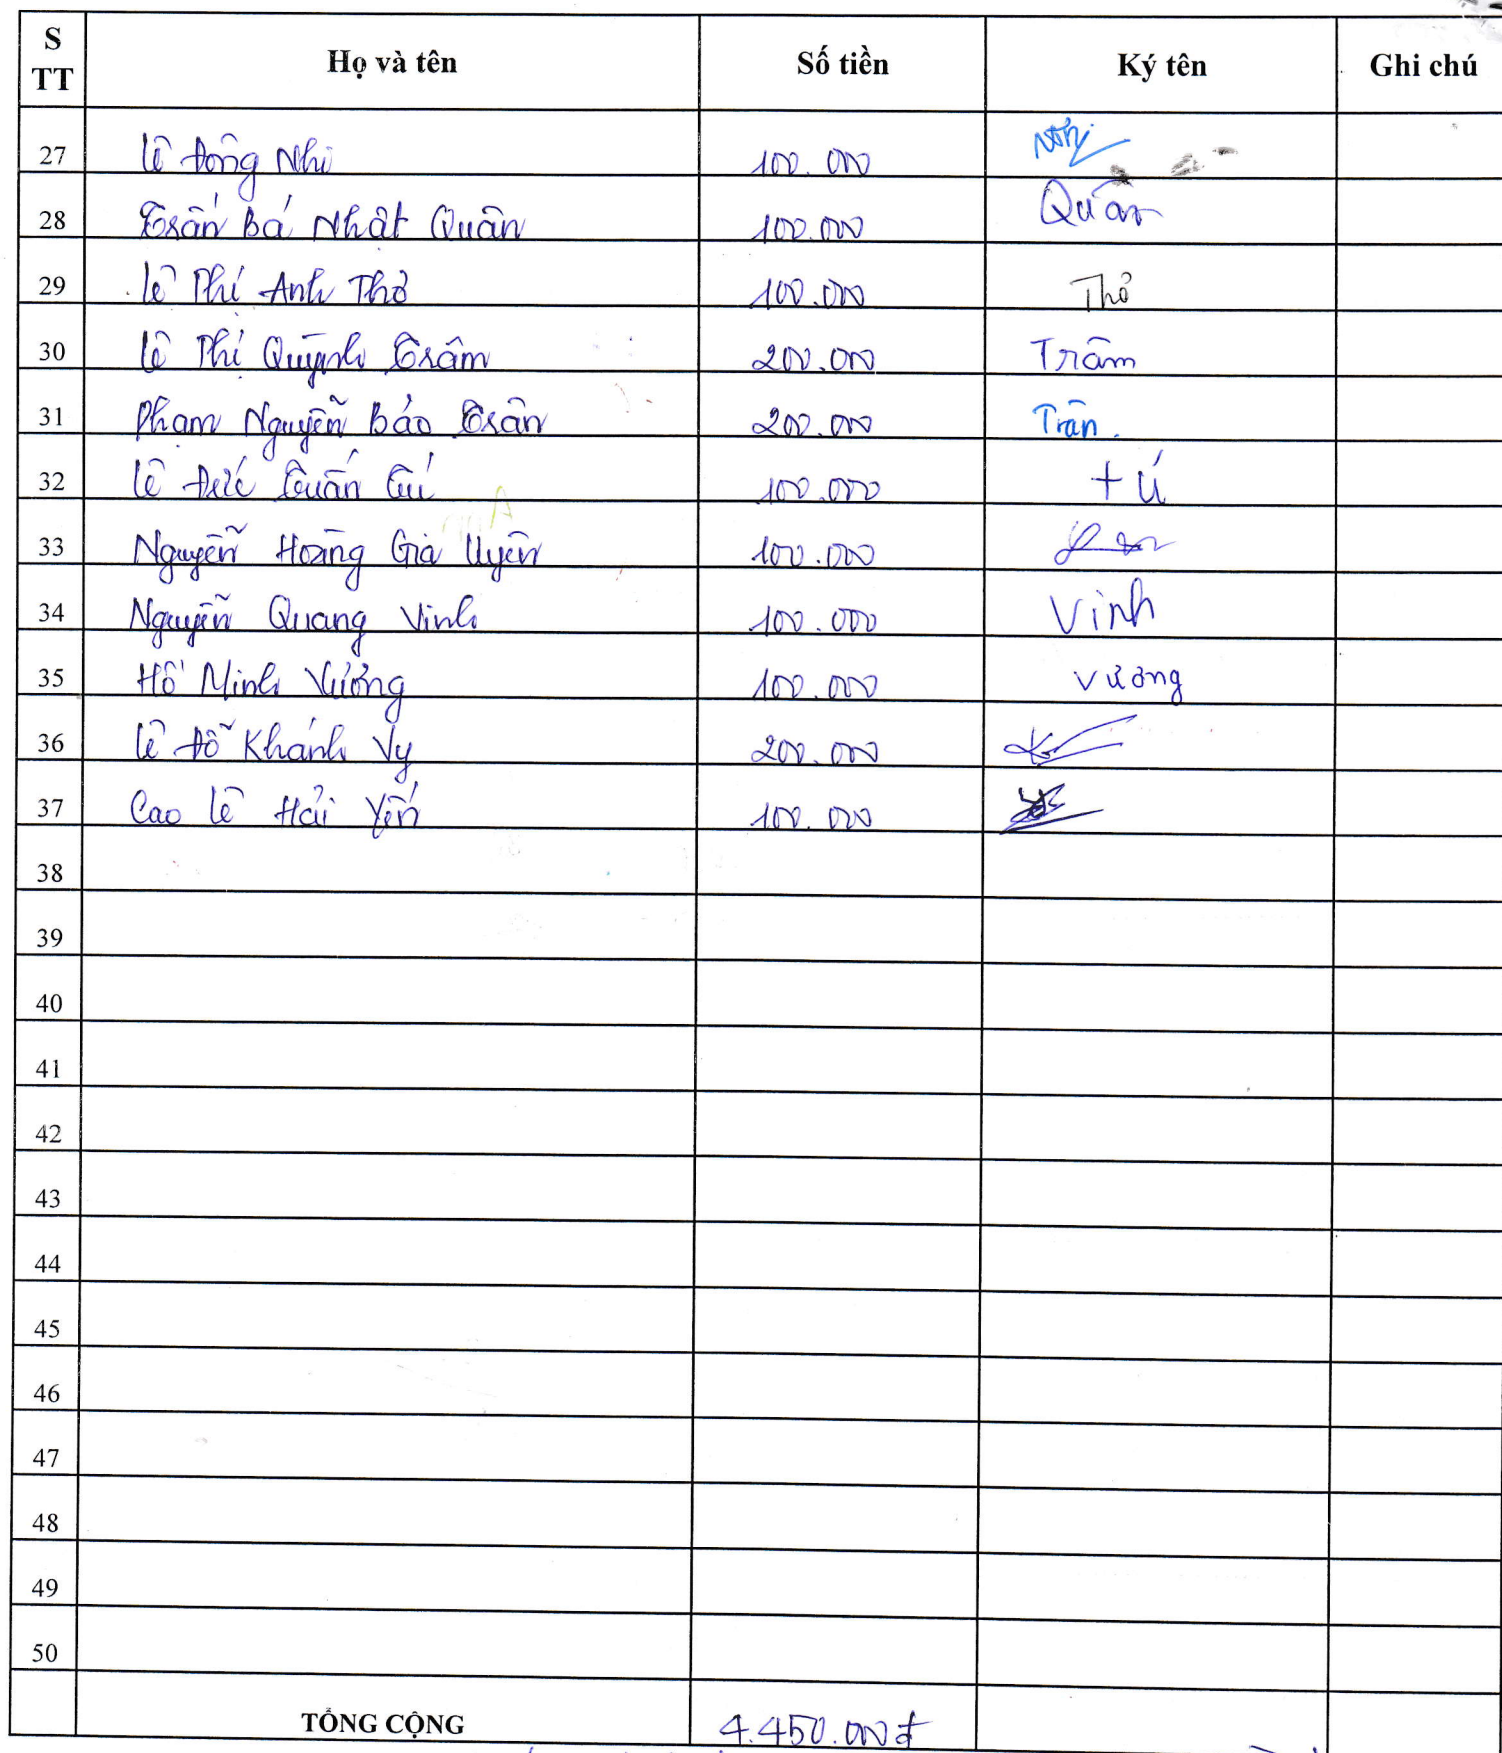 S TT Họ và tên Số tiền Ký tên Ghi chú
27 Lê Đông Nhi 100.000 Nhi
28 Trần Bá Nhật Quân 100.000 Quân
29 Lê Thị Anh Thơ 100.000 Thơ
30 Lê Thị Quỳnh Trâm 200.000 Trâm
31 Phạm Nguyễn Bảo Trân 200.000 Trân.
32 Lê Đức Tuấn Tú 100.000 Tú
33 Nguyễn Hoàng Gia Uyên 100.000
34 Nguyễn Quang Vinh 100.000 Vinh
35 Hồ Minh Vương 100.000 Vương
36 Lê Đỗ Khánh Vy 200.000
37 Cao Lê Hải Yến 100.000
38
39
40
41
42
43
44
45
46
47
48
49
50
TỔNG CỘNG 4.450.000đ